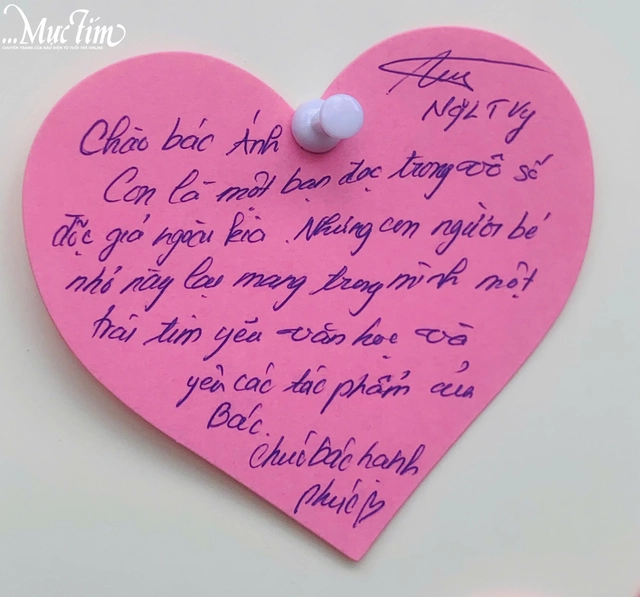 ...Mực Tím
CHUYÊN TRANG CỦA BÁO ĐIỆN TỬ TUỔI TRẺ ONLINE
NgLTVy
Chào bác Ánh
Con là một bạn đọc trong vô số
độc giả ngoài kia. Nhưng con người bé
nhỏ này lại mang trong mình một
trái tim yêu văn học và
yêu các tác phẩm của
Bác.
Chúc bác hạnh
phúc